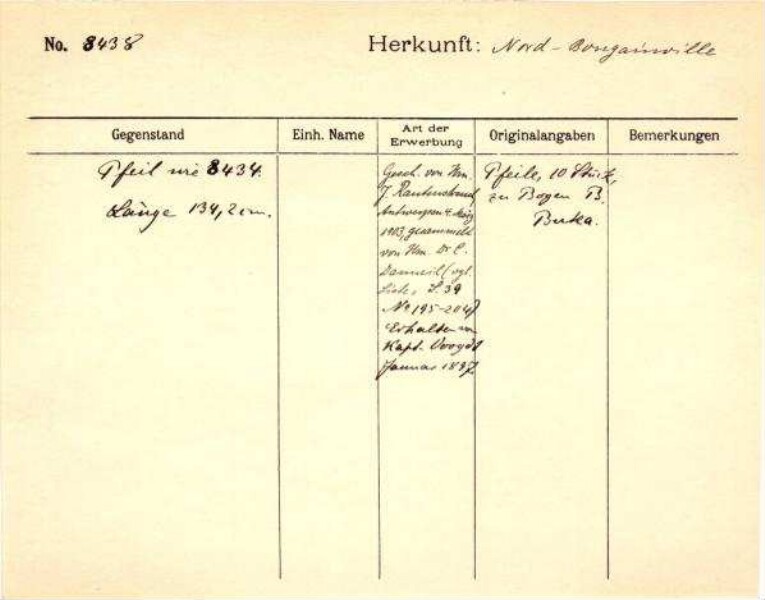 No. 8438
Herkunft: Nord-Bougainville
Gegenstand
Einh. Name
Art der
Erwerbung
Originalangaben
Bemerkungen
Pfeil wie 8434.
Länge 134,2 cm.
Gesch. von Hrn.
J. Rautenstrauch
Antwerpen 4. März
1903, gesammelt
von Hrn. Dr. C.
(vgl.
Liste, S. 39
No 195-204)
Erhalten von
Kapt. Voogdt
Januar 1897
Pfeile, 10 Stück,
zu Bogen B.
Buka.